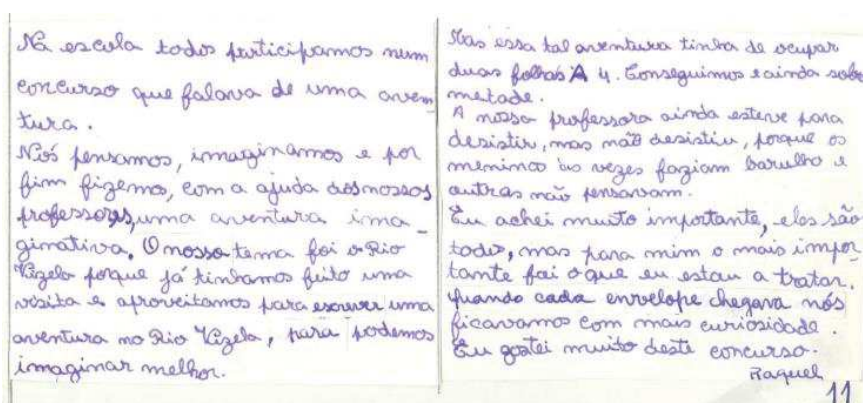 Na escola todos participamos num
concurso que falava de uma aven
tura.
Nós pensamos, imaginamos e por
fim fizemos, com a ajuda dos nossos
professores, uma aventura ima_
ginativa. O nosso tema foi o Rio
Vizela porque já tinhamos feito uma
visita e aproveitamos para escrever uma
aventura no Rio Vizela, para podemos
imaginar melhor.
Mas essa tal aventura tinha de ocupar
duas folhas A 4. Conseguimos e ainda sobr
metade.
A nossa professora ainda esteve para
desistir, mas não desistiu, porque os
meninos às vezes faziam barulho e
outras não pensavam.
Eu achei muito importante, eles são
todos, mas para mim o mais impor_
tante foi o que eu estou a tratar.
Quando cada envelope chegava nós
ficavamos com mais curiosidade.
Eu gostei muito deste concurso.
Raquel
11